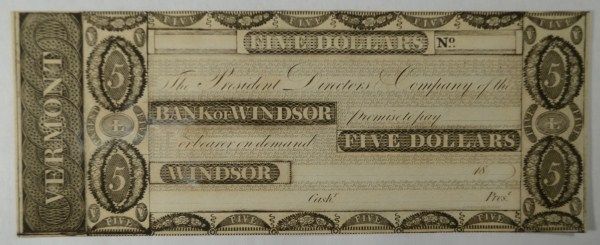 FIVE FIVE FIVE FIVE
VERMONT
FIVE DOLLARS No.
5 5
The President Directors & Company of the
BANK OF WINDSOR Promise to pay
or bearer on demand FIVE DOLLARS
WINDSOR 18
5 5
Cashr. Prest.
FIVE FIVE FIVE FIVE FIVE